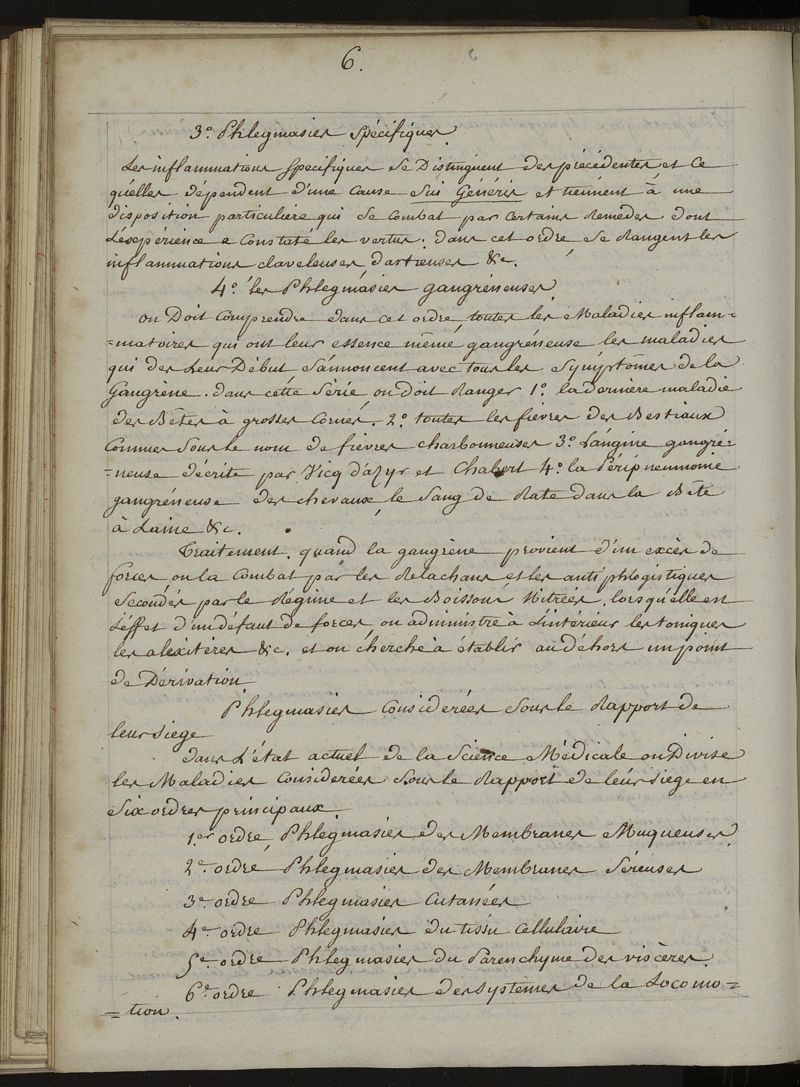 6.
3.o Phlegmasies Spécifiques.
Les inflammations Specifiques se Distinguent des précédentes et Ce
quélles dépendent d'une Cause Sui Généris et tiennent à une
disposition particuliere qui se Combat par Certains Remedes dont
L'éxpérience a Constaté les vertus. dans cet ordre se Rangent les
inflammations claveleuses, dartreuses &c.
4.o les Phlegmasies gangréneuses
on Doit Comprendre dans cet ordre, toutes les Maladies inflam=
=matoires qui ont leur essence même gangréneuse les maladies
qui des Leur Début S'annoncent avec tous les Symptômes de la
Gangrène. dans cette Série on doit Ranger 1.o la derniere maladie
des Bêtes à grosses Cornes. 2.o toutes les fièvres des Bestiaux
Connues Sous le nom de fièvres charbonneuses 3.o L'angine gangré=
=neuse décrite par Vicq dazyr et Chabert 4.o la Péripneumonie
gangréneuse des chevaux, le Sang de Rate dans la Bête
à Laine &c.
Traitement. quand la gangrène provient d'un excès de
forces on la Combat par les Relachans et les antiphlogistiques
Secondés par le Régime et les Boissons Nitrées, lorsqu'elle est
L'éffet d'un défaut de forces, on administre à L'intérieur les toniques
les aléxitères &c. et on cherche à établir au déhors un point
de Dérivation
Phlegmasies Considerées Sous le Rapport de
leur siege
dans L'état actuel de la Science Médicale on Divise
les Maladies Considerées Sous le Rapport de leur siege en
Six ordres principaux.
1.er ordre, Phlegmasies des Membranes Muqueuses
2.e ordre Phlegmasies des Membranes Séreuses
3.e ordre Phlegmasies Cutanées
4.e ordre Phlegmasies du tissu Cellulaire
5.e ordre Phlegmasies du Parenchyme des viscères.
6.e ordre Phlegmasies des Systèmes de la Locomo=
=tion.